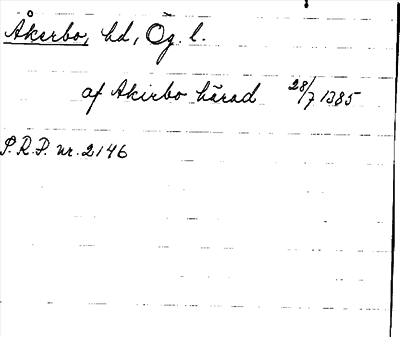 Åkerbo, hd, Ög. l.
af Akirbo härad 28/7 1385
P.R.P. nr. 2146